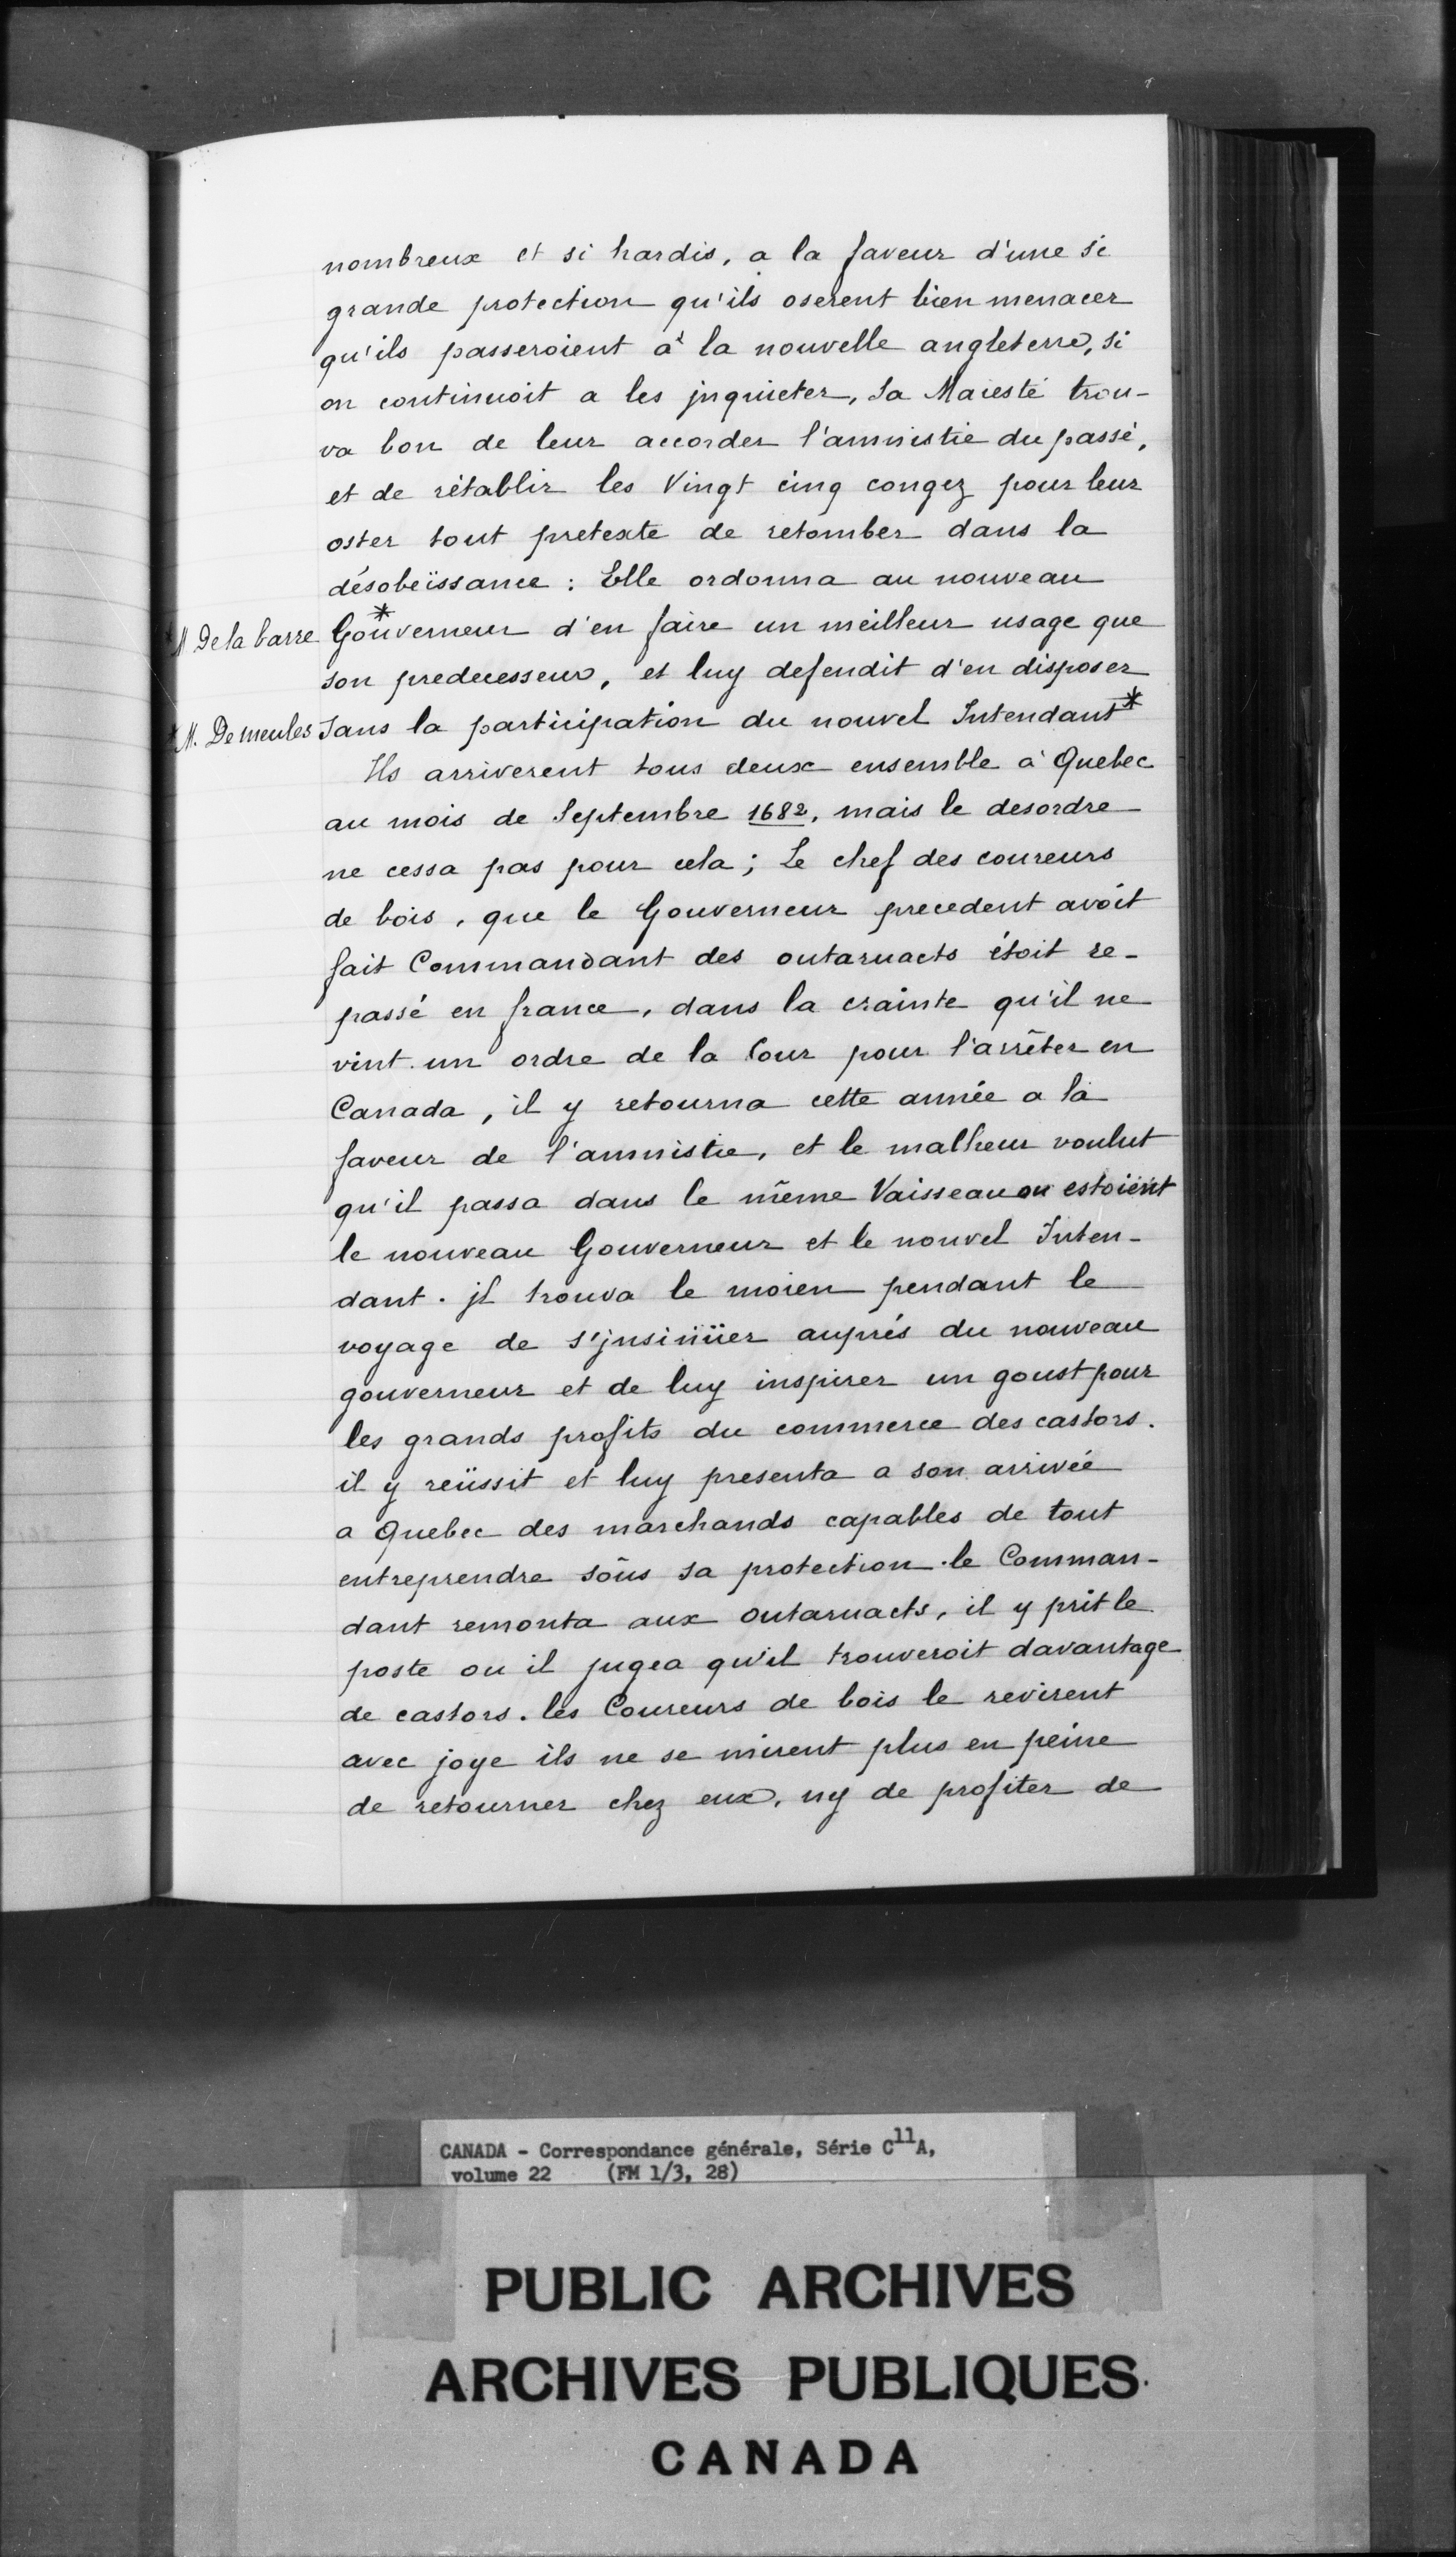 nombreux et si hardis, a la faveur d'une si
grande protection qu'ils oserent bien menacer
qu'ils passeroient à la nouvelle angleterre, si
on continuoit a les jnquieter, sa Maiesté trou-
va bon de leur accorder l'amnistie du passé,
et de rétablir les Vingt cinq congez pour leur
oster tout pretexte de retomber dans la
désobeïssance : Elle ordonna au nouveau
* M De la barre Gouverneur* d'en faire un meilleur usage que
son predecesseur, et luy defendit d'en disposer
* M. De meules sans la participation du nouvel Intendant*
Ils arriverent tous deux ensemble à Quebec
au mois de Septembre 1682, mais le desordre
ne cessa pas pour cela ; Le chef des coureurs
de bois, que le Gouverneur precedent avoit
fait Commandant des outaruacts étoit re-
passé en france, dans la crainte qu'il ne
vint un ordre de la Cour pour l'arrêter en
Canada, il y retourna cette année a la
faveur de l'amnistie, et le malheur voulut
qu'il passa dans le même Vaisseau ou estoient
le nouveau Gouverneur et le nouvel Inten-
dant. jl trouva le moien pendant le
voyage de s'jnsinüer auprés du nouveau
gouverneur et de luy inspirer un goust pour
les grands profits du commerce des castors.
il y reüssit et luy presenta a son arrivée
a Quebec des marchands capables de tout
entreprendre soûs sa protection. le Comman-
dant remonta aux Outaruacts, il y prit le
poste ou il jugea qu'il trouveroit davantage
de castors. les Coureurs de bois le revirent
avec joye ils ne se mirent plus en peine
de retourner chez eux, ny de profiter de
CANADA - Correspondance générale, Série C11A,
volume 22 (FM 1/3, 28)
PUBLIC ARCHIVES
ARCHIVES PUBLIQUES
CANADA